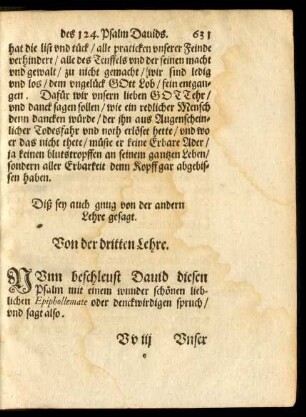 des 124. Psalm Dauids. 631
hat die list vnd tück / alle praticken vnserer Feinde
verhindert / alle des Teuffels vnd der seinen macht
vnd gewalt / zu nicht gemacht / wir sind ledig
vnd los / dem vngelück GOtt Lob / fein entgan-
gen. Dafür wir vnsern lieben GOTT ehr /
vnd danck sagen sollen / wie ein redlicher Mensch
denn dancken würde / der ihn aus Augenschein-
licher Todesfahr vnd noth erlöset hette / vnd wo
er das nicht thete / müste er keine Erbare Ader /
ja keinen blutstropffen an seinem gantzen Leben /
sondern aller Erbarkeit denn Kopff gar abgebis-
sen haben.
Diß sey auch gnug von der andern
Lehre gesagt.
Von der dritten Lehre.
NVnn beschleust Dauid diesen
Psalm mit einem wunder schönen lieb-
lichen Epiphollemate oder denckwirdigen spruch /
vnd sagt also.
Vv iij Vnser